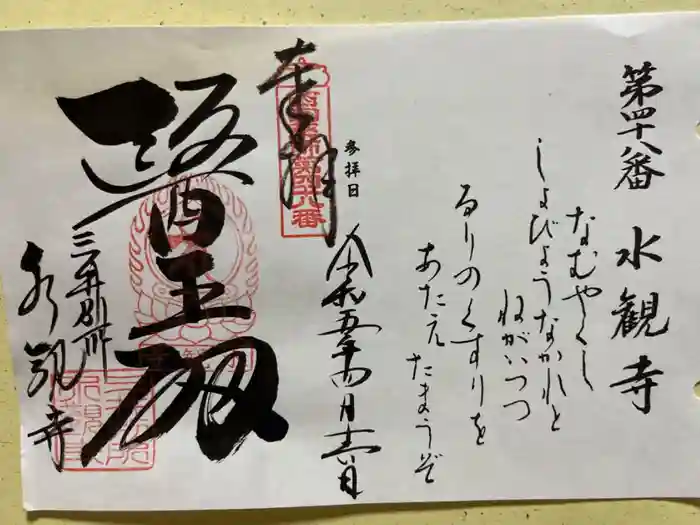 第四十八番 水観寺
なむやくし
しょびょうなかれと
ねがいつつ
るりのくすりを
あたえたまうぞ
参拝日
令和五年四月十六日
奉拝
西国薬師第四十八番
醫王殿
三井別所
水観寺